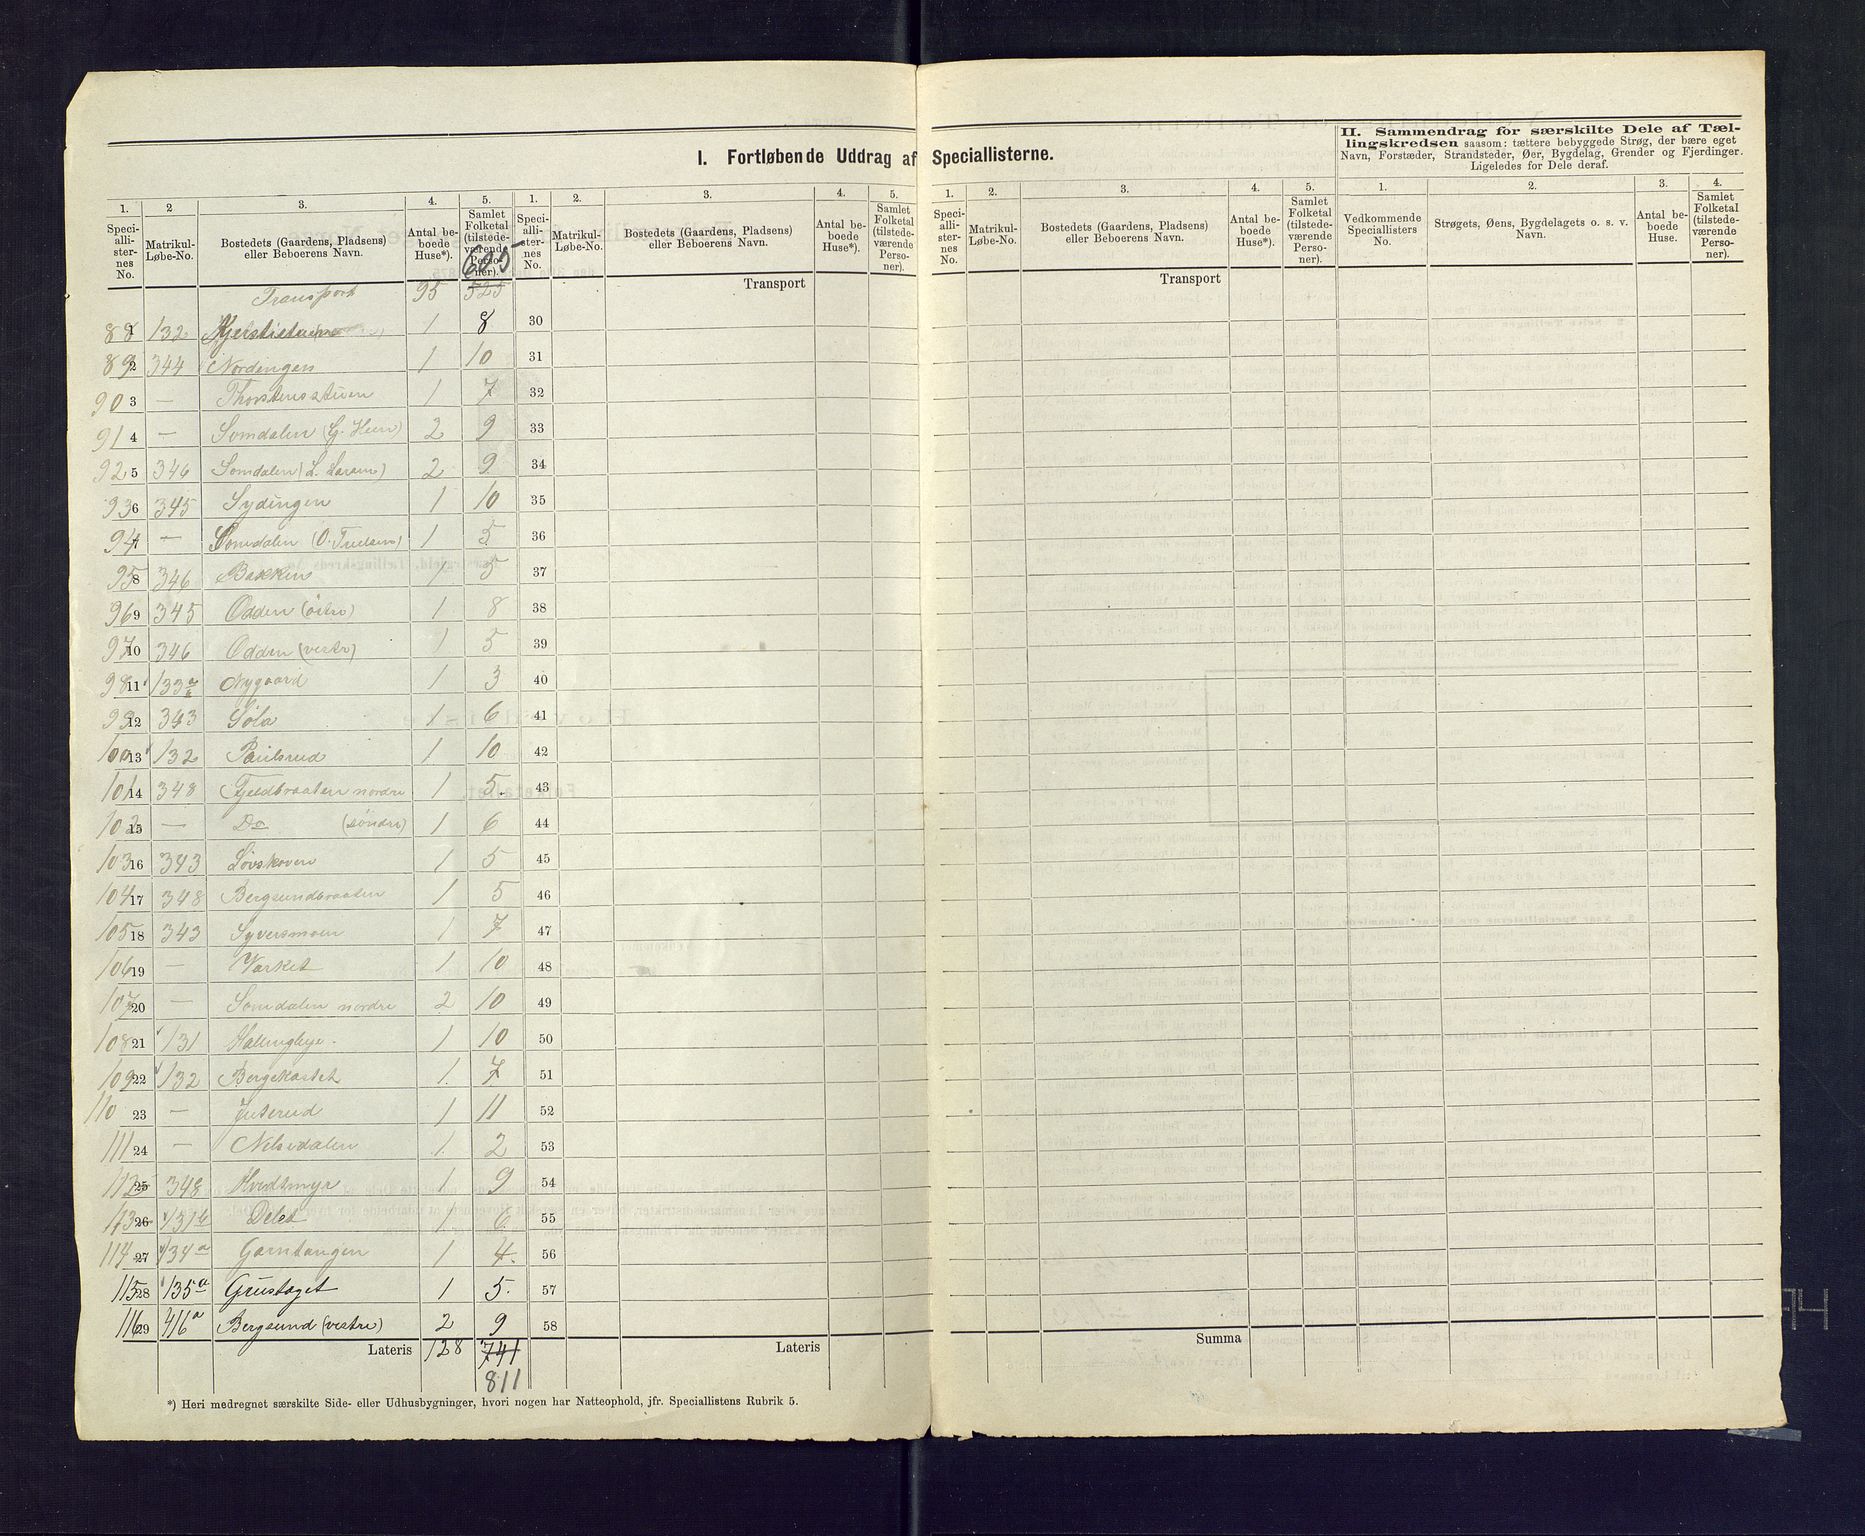 I. Fortløbende Uddrag af Speciallisterne.
II. Sammendrag for særskilte Dele af Tællingskredsen saasom: tættere bebyggede Strøg, der bære eget Navn, Forstæder, Strandsteder, Øer, Bygdelag, Grender og Fjerdinger. Ligeledes for Dele deraf.
1. 2 3. 4. 5. 1. 2. 3. 4. 5. 1. 2. 3. 4. 5. 1. 2. 3. 4.
Speciallisternes No. Matrikul-Løbe-No. Bostedets (Gaardens, Pladsens) eller Beboerens Navn. Antal beboede Huse*). Samlet Folketal (tilstedeværende Personer).
Speciallisternes No. Matrikul-Løbe-No. Bostedets (Gaardens, Pladsens) eller Beboerens Navn. Antal beboede Huse*). Samlet Folketal (tilstedeværende Personer).
Speciallisternes No. Matrikul-Løbe-No. Bostedets (Gaardens, Pladsens) eller Beboerens Navn. Antal beboede Huse*). Samlet Folketal (tilstedeværende Personer).
Vedkommende Speciallisters No. Strøgets, Øens, Bygdelagets o. s. v. Navn. Antal beboede Huse. Samlet Folketal (tilstedeværende Personer).
605
Transport 95 525 Transport Transport
88 1 132 1 8 30
89 2 344 Nordengen 1 10 31
90 3 — Thorstensstuen 1 7 32
91 4 — Somdalen (G. Heen) 2 9 33
92 5 346 Somdalen (L. Larsen) 2 9 34
93 6 345 Sydingen 1 10 35
94 7 — Somdalen (O. Truelsen) 1 5 36
95 8 346 Bakken 1 5 37
96 9 345 Odden (östre) 1 8 38
97 10 346 Odden (vestre) 1 5 39
98 11 133 Nygaard 1 3 40
99 12 343 Söla 1 6 41
100 13 132 Paulsrud 1 10 42
101 14 348 Fjeldbraaten nordre 1 5. 43
102 15 — Do (söndre) 1 6 44
103 16 343 Lövskoven 1 5 45
104 17 348 Bergsundbraaten 1 5 46
105 18 343 Syversmoen 1 7 47
106 19 — Varket 1 10 48
107 20 — Somdalen nordre 2 10 49
108 21 131 1 10 50
109 22 132 Bergekastet 1. 7 51
110 23 — Juterud 1 11 52
111 24 — Nelsedalen 1. 2 53
112 25 348 Hvidtmyr 1 9 54
113 26 131b Delet 1. 6. 55
114 27 134a Garntangen 1 4. 56
115 28 135a Grustaget 1 5. 57
116 29 416a Bergsund (vestre) 2 9 58
Lateris 128 741 Lateris Summa
811
*) Heri medregnet særskilte Side- eller Udhusbygninger, hvori nogen har Natteophold, jfr. Speciallistens Rubrik 5.